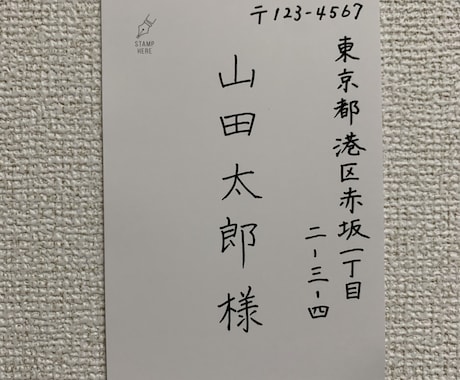 〒123-4567
東京都港区赤坂一丁目
二-三-四
山田太郎様
STAMP
HERE